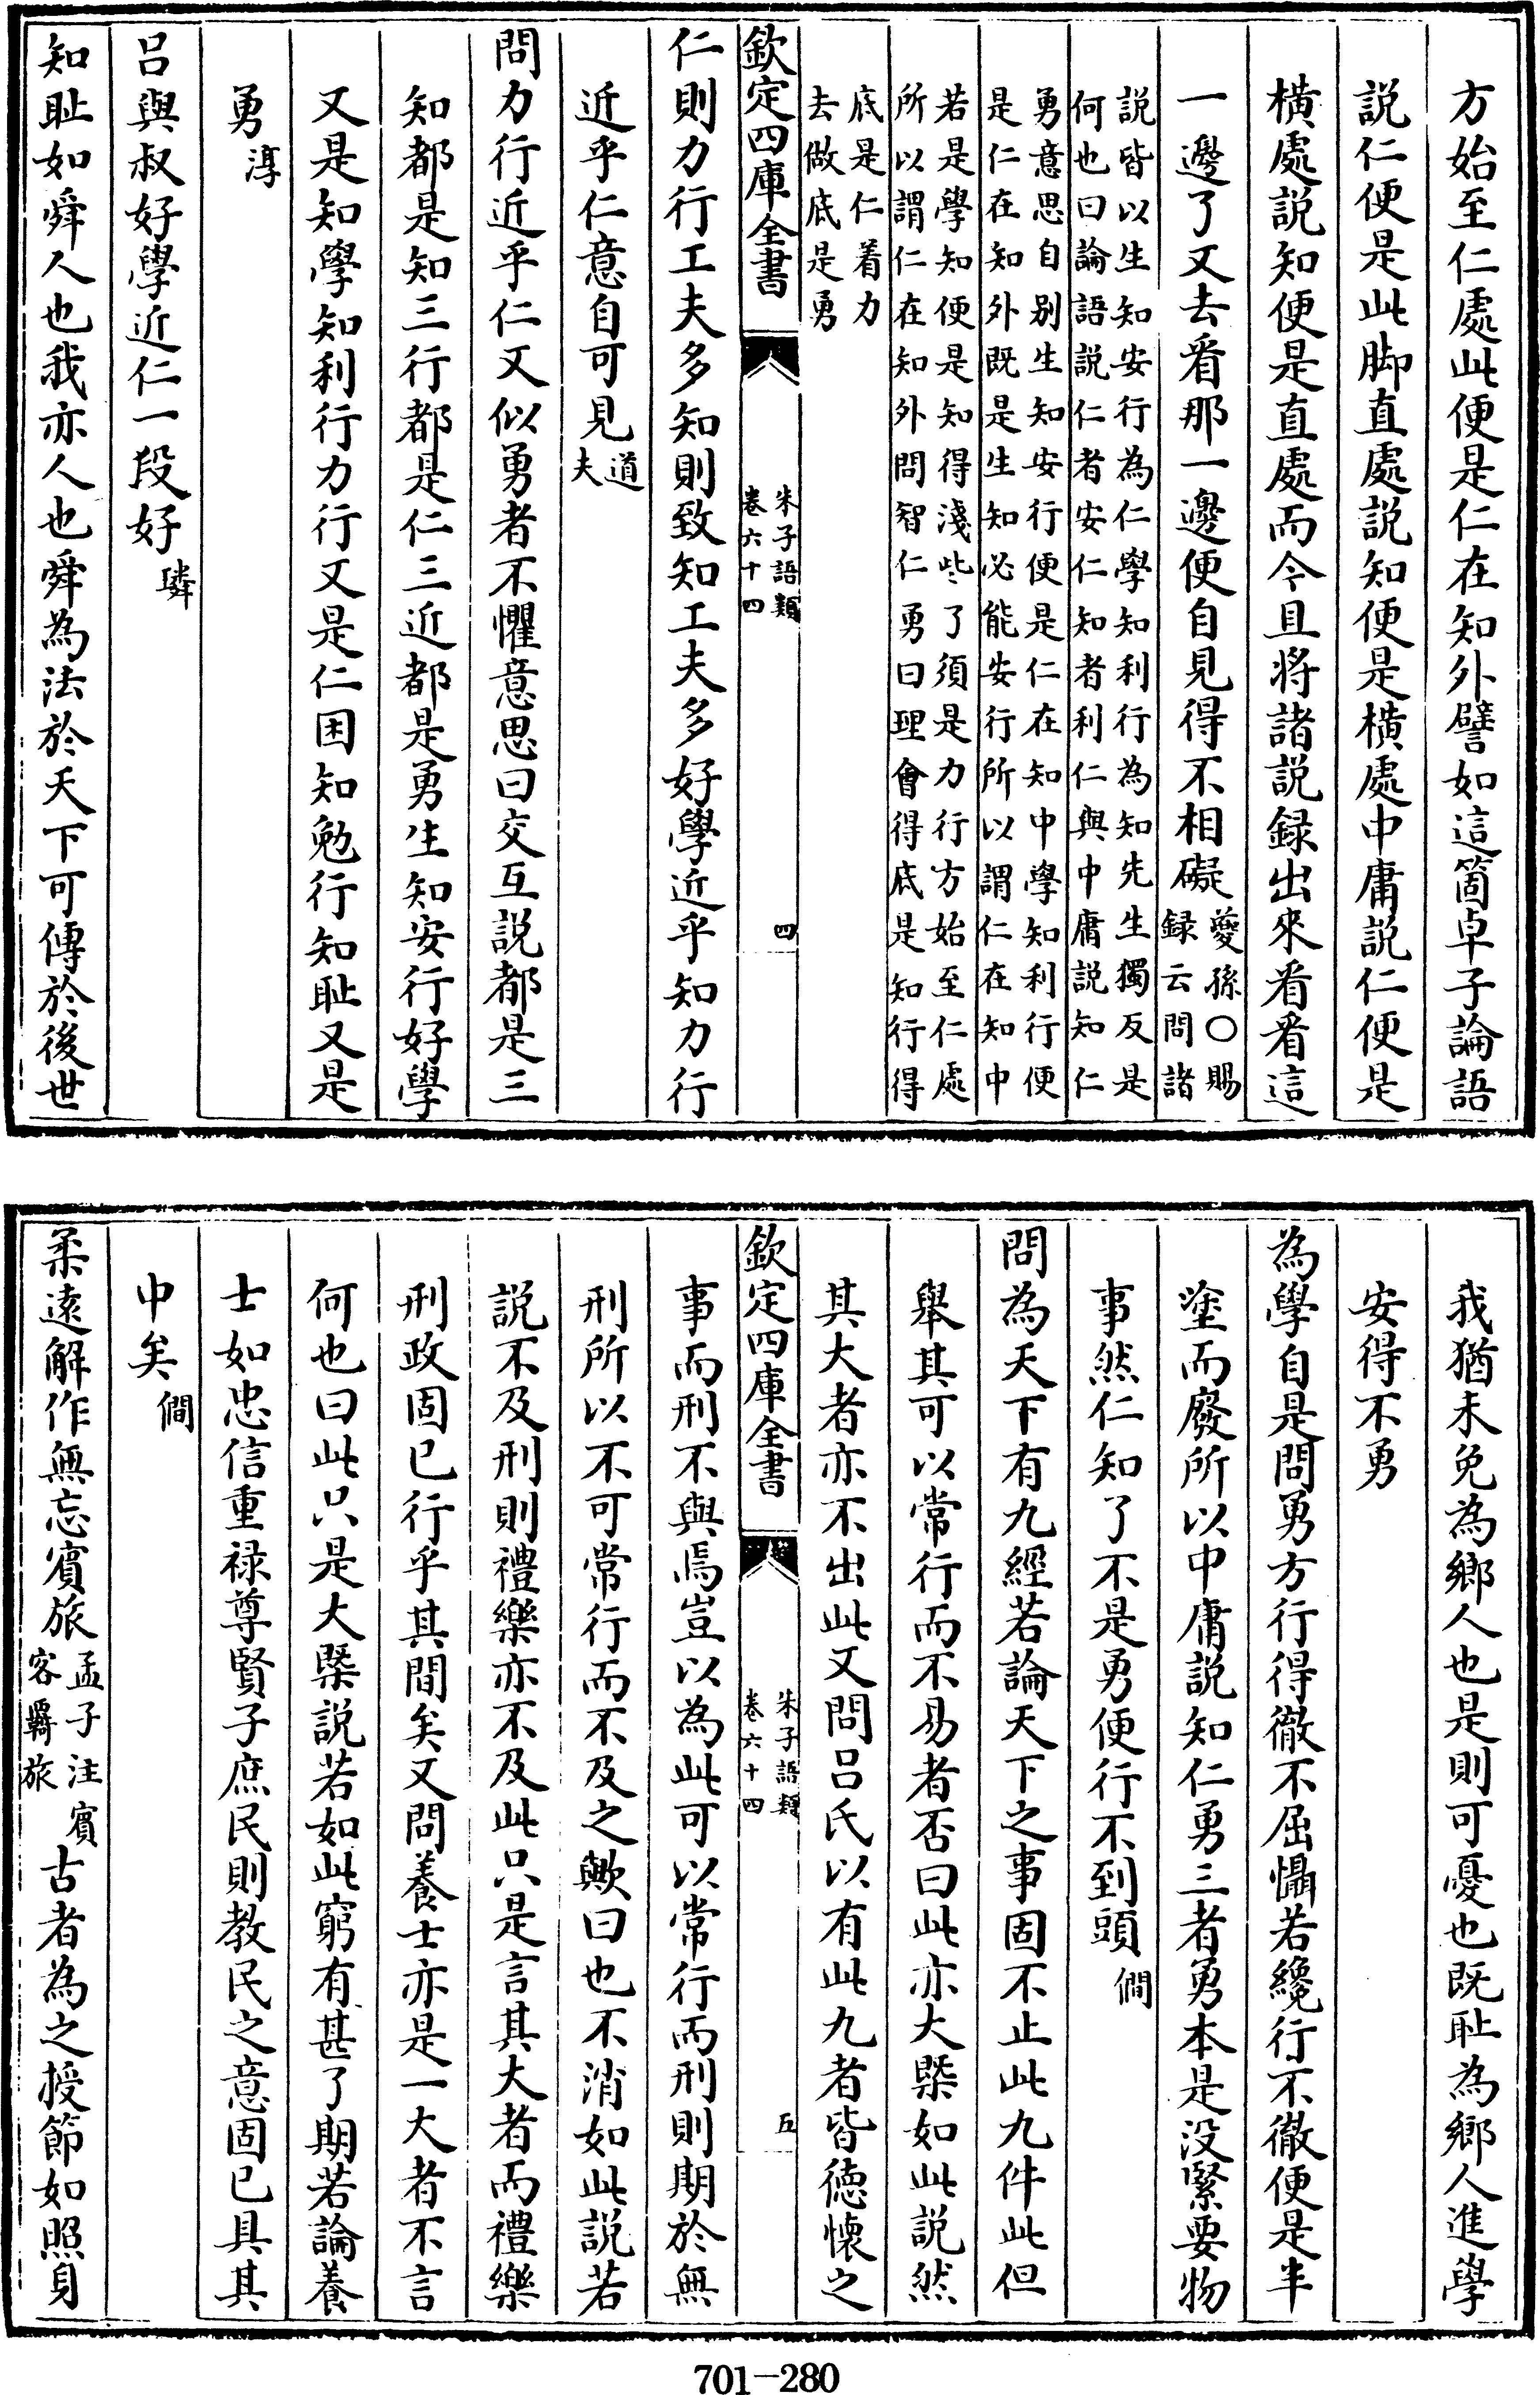 方始至仁處此便是仁在知外譬如這箇卓子論語
説仁便是此脚直處説知便是橫處中庸説仁便是
橫處説知便是直處而今且將諸説録出來看看這
一邊了又去看那一邊便自見得不相礙夔孫○賜録云問諸
説皆以生知安行為仁學知利行為知先生獨反是
何也曰論語説仁者安仁知者利仁與中庸説知仁
勇意思自别生知安行便是仁在知中學知利行便
是仁在知外既是生知必能安行所以謂仁在知中
若是學知便是知得淺些了須是力行方始至仁處
所以謂仁在知外問智仁勇曰理會得底是知行得
底是仁着力
去做底是勇
欽定四庫全書
朱子語類
卷六十四
四
仁則力行工夫多知則致知工夫多好學近乎知力行
近乎仁意自可見道夫
問力行近乎仁又似勇者不懼意思曰交互説都是三
知都是知三行都是仁三近都是勇生知安行好學
又是知學知利行力行又是仁困知勉行知恥又是
勇淳
吕與叔好學近仁一段好璘
知恥如舜人也我亦人也舜為法於天下可傳於後世
我猶未免為鄉人也是則可憂也既恥為鄉人進學
安得不勇
為學自是問勇方行得徹不屈懾若纔行不徹便是半
塗而廢所以中庸説知仁勇三者勇本是没緊要物
事然仁知了不是勇便行不到頭僩
問為天下有九經若論天下之事固不止此九件此但
舉其可以常行而不易者否曰此亦大槩如此説然
其大者亦不出此又問吕氏以有此九者皆徳懷之
欽定四庫全書
朱子語類
卷六十四
五
事而刑不與焉豈以為此可以常行而刑則期於無
刑所以不可常行而不及之歟曰也不消如此説若
説不及刑則禮樂亦不及此只是言其大者而禮樂
刑政固已行乎其間矣又問養士亦是一大者不言
何也曰此只是大槩説若如此窮有甚了期若論養
士如忠信重禄尊賢子庶民則教民之意固已具其
中矣僩
柔逺解作無忘賓旅孟子注賓客羈旅古者為之授節如照身
701-280